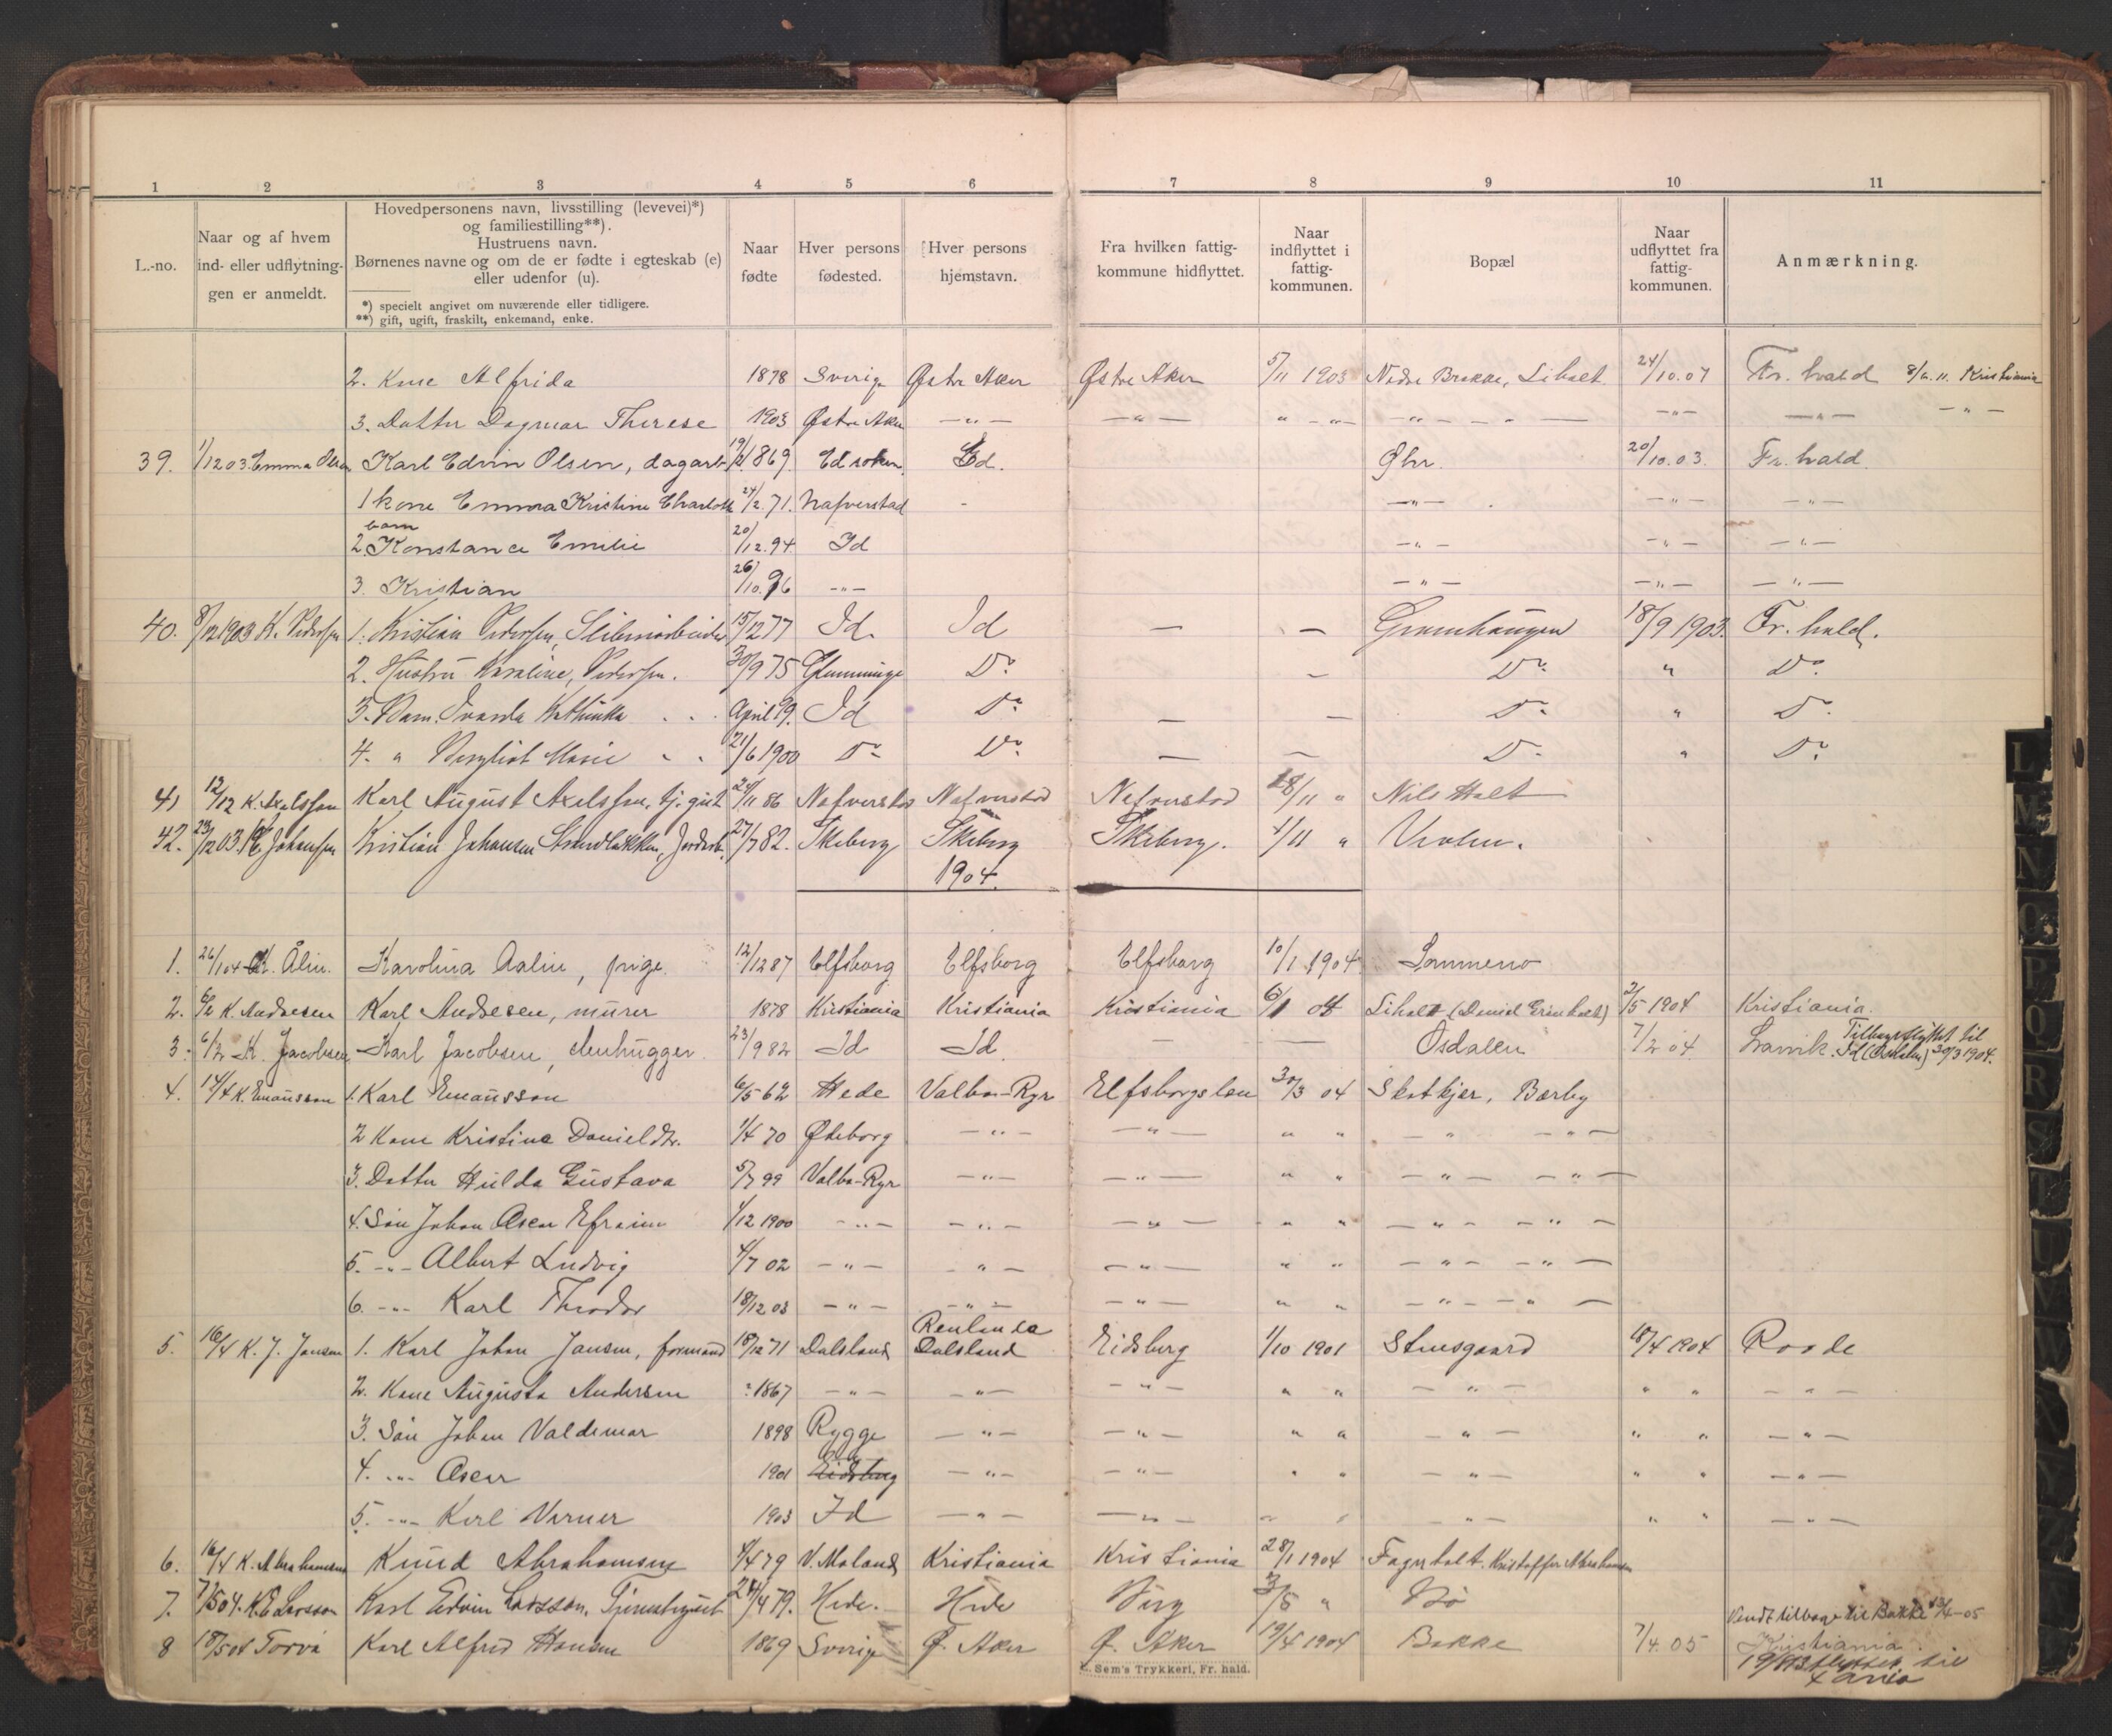 1 2 3 4 5 6 7 8 9 10 11
L.-no.
Naar og af hvem
ind- eller udflytnin-
gen er anmeldt.
Hovedpersonens navn, livsstilling (levevei)*)
og familiestilling**).
Hustruens navn.
Børnenes navne og om de er fødte i egteskab (e)
eller udenfor (u).
*) specielt angivet om nuværende eller tidligere.
**) gift, ugift, fraskilt, enkemand, enke.
Naar
fødte
Hver persons
fødested.
Hver persons
hjemstavn.
Fra hvilken fattig-
kommune hidflyttet.
Naar
indflyttet i
fattig-
kommunen.
Bopæl
Naar
udflyttet fra
fattig-
kommunen.
Anmærkning.
2. Kone Alfrida 1878 Sverige Østre Aker Østre Aker 5/11 1903 Nedre Brekke, Liholt 24/10.07 Fr.hald 8/6.11. Kristiania
3. Datter Dagmar Therese 1903 Østre Aker —"— —"— " —"— —"— — " — —"— —"— —"—
39. 1/12 03. Emma Olsen Karl Edvin Olsen, dagarb. 19/2 1869. Ed soken. Id. Ghr. 20/10.03. Fr.hald.
1 kone Emma Kristine Charlotte 24/2.71. Nafverstad - —"— —"— —"—
barn
2. Konstance Emilie 20/12.94 Id —"— —"— —"—
3. Kristian 26/10.96 —"— —"— —"— —"—
40. 8/12 1903 K. Pedersen 1. Kristian Pedersen, Sliberiarbeider 15/12 77 Id. Id — — Grønhaugen 18/9 1903. Fr.hald.
2. Hustru Karoline, Pedersen. 30/9 75 Glemminge Do — Do " Do
3. Barn. Svanda Kathinka April 99. Id Do — — Do " Do
4. " Bergliot Marie 21/6 1900 Do Do — — Do " Do
41 12/12 K. Axelsson Karl August Axelsson, tj.gut 24/11 86 Nafverstad Nafverstad Nafverstad 28/11 " Nils Holt
42. 23/12 03. K. Johansen Kristian Johansen Strandbakken, Jordarb. 27/7 82. Skeberg Skeberg Skeberg. 4/11 "
1904.
1. 26/1 04 K. Ålin. Karolina Aalin, pige. 12/12 87 Elfsborg Elfsborg Elfsborg 10/1 1904 Sommero
2. 6/2 K. Andresen Karl Andresen, murer 1878 Kristiania Kristiania Kristiania 6/1 04 Liholt (Daniel Grimholt) 2/5 1904 Kristiania.
3. 6/2 K. Jacobsen Karl Jacobsen, stenhugger. 23/9 82 Id Id. — — Osdalen 7/2 04 Larvik. Tilbageflyttet til
Id (Osdalen) 30/3 1904.
4. 14/4 K. Emausson 1. Karl Emausson 6/5 62 Hede Valbo-Ryr Elfsborgslen 30/3 04 Skotkjer, Bærby
2 Kone Kristine Danieldtr. 1/4 70 Ødeborg —"— —"— " " — " — " —
3. Datter Hulda Gustava 5/7 99 Valbo-Ryr —"— —"— " " —"— —"—
4. Søn Johan Oscar Efraim 1/12 1900 —"— —"— —"— " " —"— —"—
5. —"— Albert Ludvig 4/7 02 —"— —"— —"— " " —"— —"—
6. —"— Karl Theodor 18/12 03 —"— —"— —"— " " —"— —"—
Renlanda
5. 16/4 K. J. Jansen 1. Karl Johan Jansen, formand 18/12 71 Dalsland Dalsland Eidsberg 1/10 1901 Stensgaard 18/4 1904 Raade
2. Kone Augusta Andersen 1867 —"— —"— —"— " " —"— " " —"—
3. Søn Johan Valdemar 1898 Rygge —"— —"— " " —"— " " —"—
4. —"— Oscar 1901 Eidsberg —"— —"— " " —"— " " —"—
5. —"— Karl Verner 1903 Id —"— —"— " " —"— " " —"—
6. 16/4 K. Abrahamsen Knud Abrahamsen 4/4 79 V. Moland Kristiania Kristiania 28/1 1904 Fagerholt. Kristoffer Abrahamsen
7. 7/5 04. K. E Larsson Karl Edvin Larsson, Tjenestegut 24/4 79. Hede. Hede Berg 3/5 " Bø
Vendt tilbage til Bakke 13/4-05
8 18/5 04 Torvå Karl Alfred Hansen 1869 Sverige Ø. Aker Ø. Aker 19/4 1904 Bakke 7/4.05 Kristiania.
flyttet til
E. Sem's Trykkeri, Fr. hald.
L M N O P Q R S T U